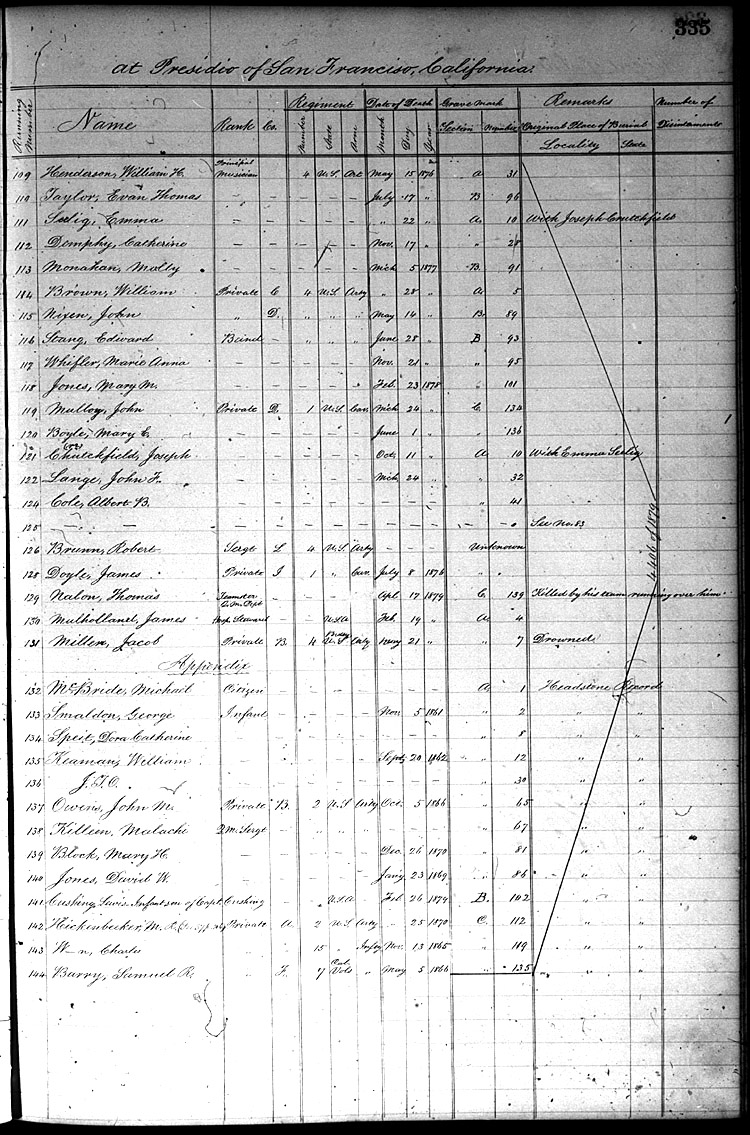 335
at Presidio of San Franciso, California.
Running Number Name Rank Co. Regiment Number State Arm Date of Death Month Day Year Grave Mark Section Number Remarks Original Place of Burial Locality State Number of Disinterment
109 Henderson, William H. Principal Musician – 4 U.S. Art May 15 1876 A 31
110 Taylor, Evan Thomas – – – – – July 17 „ B 96
111 Selig, Emma – – – – – „ 22 „ A 10 With Joseph Crutchfield
112 Demphy, Catherine – – – – – Nov. 17 „ „ 28
113 Monahan, Molly – – – – Mch 5 1877 B 91
114 Brown, William Private C 4 U.S. Arty „ 28 „ A 5
115 Nixen, John „ D. „ „ „ May 14 „ B 89
116 Stang, Edward Band – „ „ „ June 28 „ B 93
117 Whifler, Marie Anna – – – – – Nov. 21 „ „ 95
118 Jones, Mary M. – – – – Feb. 23 1878 „ 101
119 Malloy, John Private D. 1 U.S. Cav. Mch 24 „ C 134
120 Boyle, Mary E. – – – – – June 1 „ „ 136
121 Chutchfield, Joseph – – – – – Oct. 11 „ A 10 With Emma Selig
122 Lange, John F. – – – – – Mch 24 „ „ 32
124 Cole, Albert B. – – – – – – – – „ 41
125 – – – – – – – – – – – – See No. 83
126 Brunn, Robert Sergt L 4 U.S. Arty – – – Unknown
128 Doyle, James Private I 1 „ Cav. July 8 1876 „ „
129 Nalon, Thomas Teamster Q.M. Dept – – – – Apl 17 1879 C 139 Killed by his team running over him
130 Mulholland, James Hosp. Steward – – U.S.A. Feb. 19 „ A 4
131 Millen, Jacob Private B. 4 U.S. Arty 21 „ „ 7 Drowned
4406 of 1879
Appendix
132 McBride, Michail Citizen – – – – – – – A 1 Headstone Record
133 Smaldon, George Infant – – – – Nov. 5 1861 „ 2 „ „
134 Speit, Dora Catherine – – – – – – – – „ 8 „ „
135 Keaman, William – – – – – Sept 20 1862 „ 12 „ „
136 J.T.C. – – – – – – – – „ 30 „ „
137 Owens, John M. Private B. 2 U.S. Arty Oct. 5 1866 „ 65 „ „
138 Killeen, Malachi Q.M. Sergt – „ „ „ – – – „ 67 „ „
139 Block, Mary H. – – – – – Dec. 26 1870 „ 81 „ „
140 Jones, David W. – – – – – Jany. 23 1869 „ 86 „ „
141 Cushing, Infant son of Capt. Cushing U.S.A. Feb 26 1874 B. 142 „ „
142 Hickenbecker, M. Private A 2 U.S. Arty – 25 1870 C. 112 „ „
143 W–n, Charles 15 „ Infty Nov. 13 1865 „ 119 „ „
144 Barry, Samuel R. F. 7 Cal. Vols „ May 5 1866 „ 135 „ „